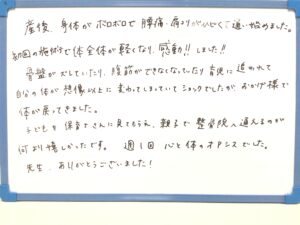 産後、身体がボロボロで腰痛・肩コリがひどくて通い始めました。
初回の施術で体全体が軽くなり、感動!!しました!!
骨盤がズレていたり、腹筋ができなくなっていたり育児に追われて
自分の体が想像以上に変わってしまっていてショックでしたが、おかげ様で
体が戻ってきました。
子どもを保育士さんに見てもらえ、親子で整骨院へ通えるのが
何より嬉しかったです。 週1回 心と体のオアシスでした。
先生、ありがとうございました!